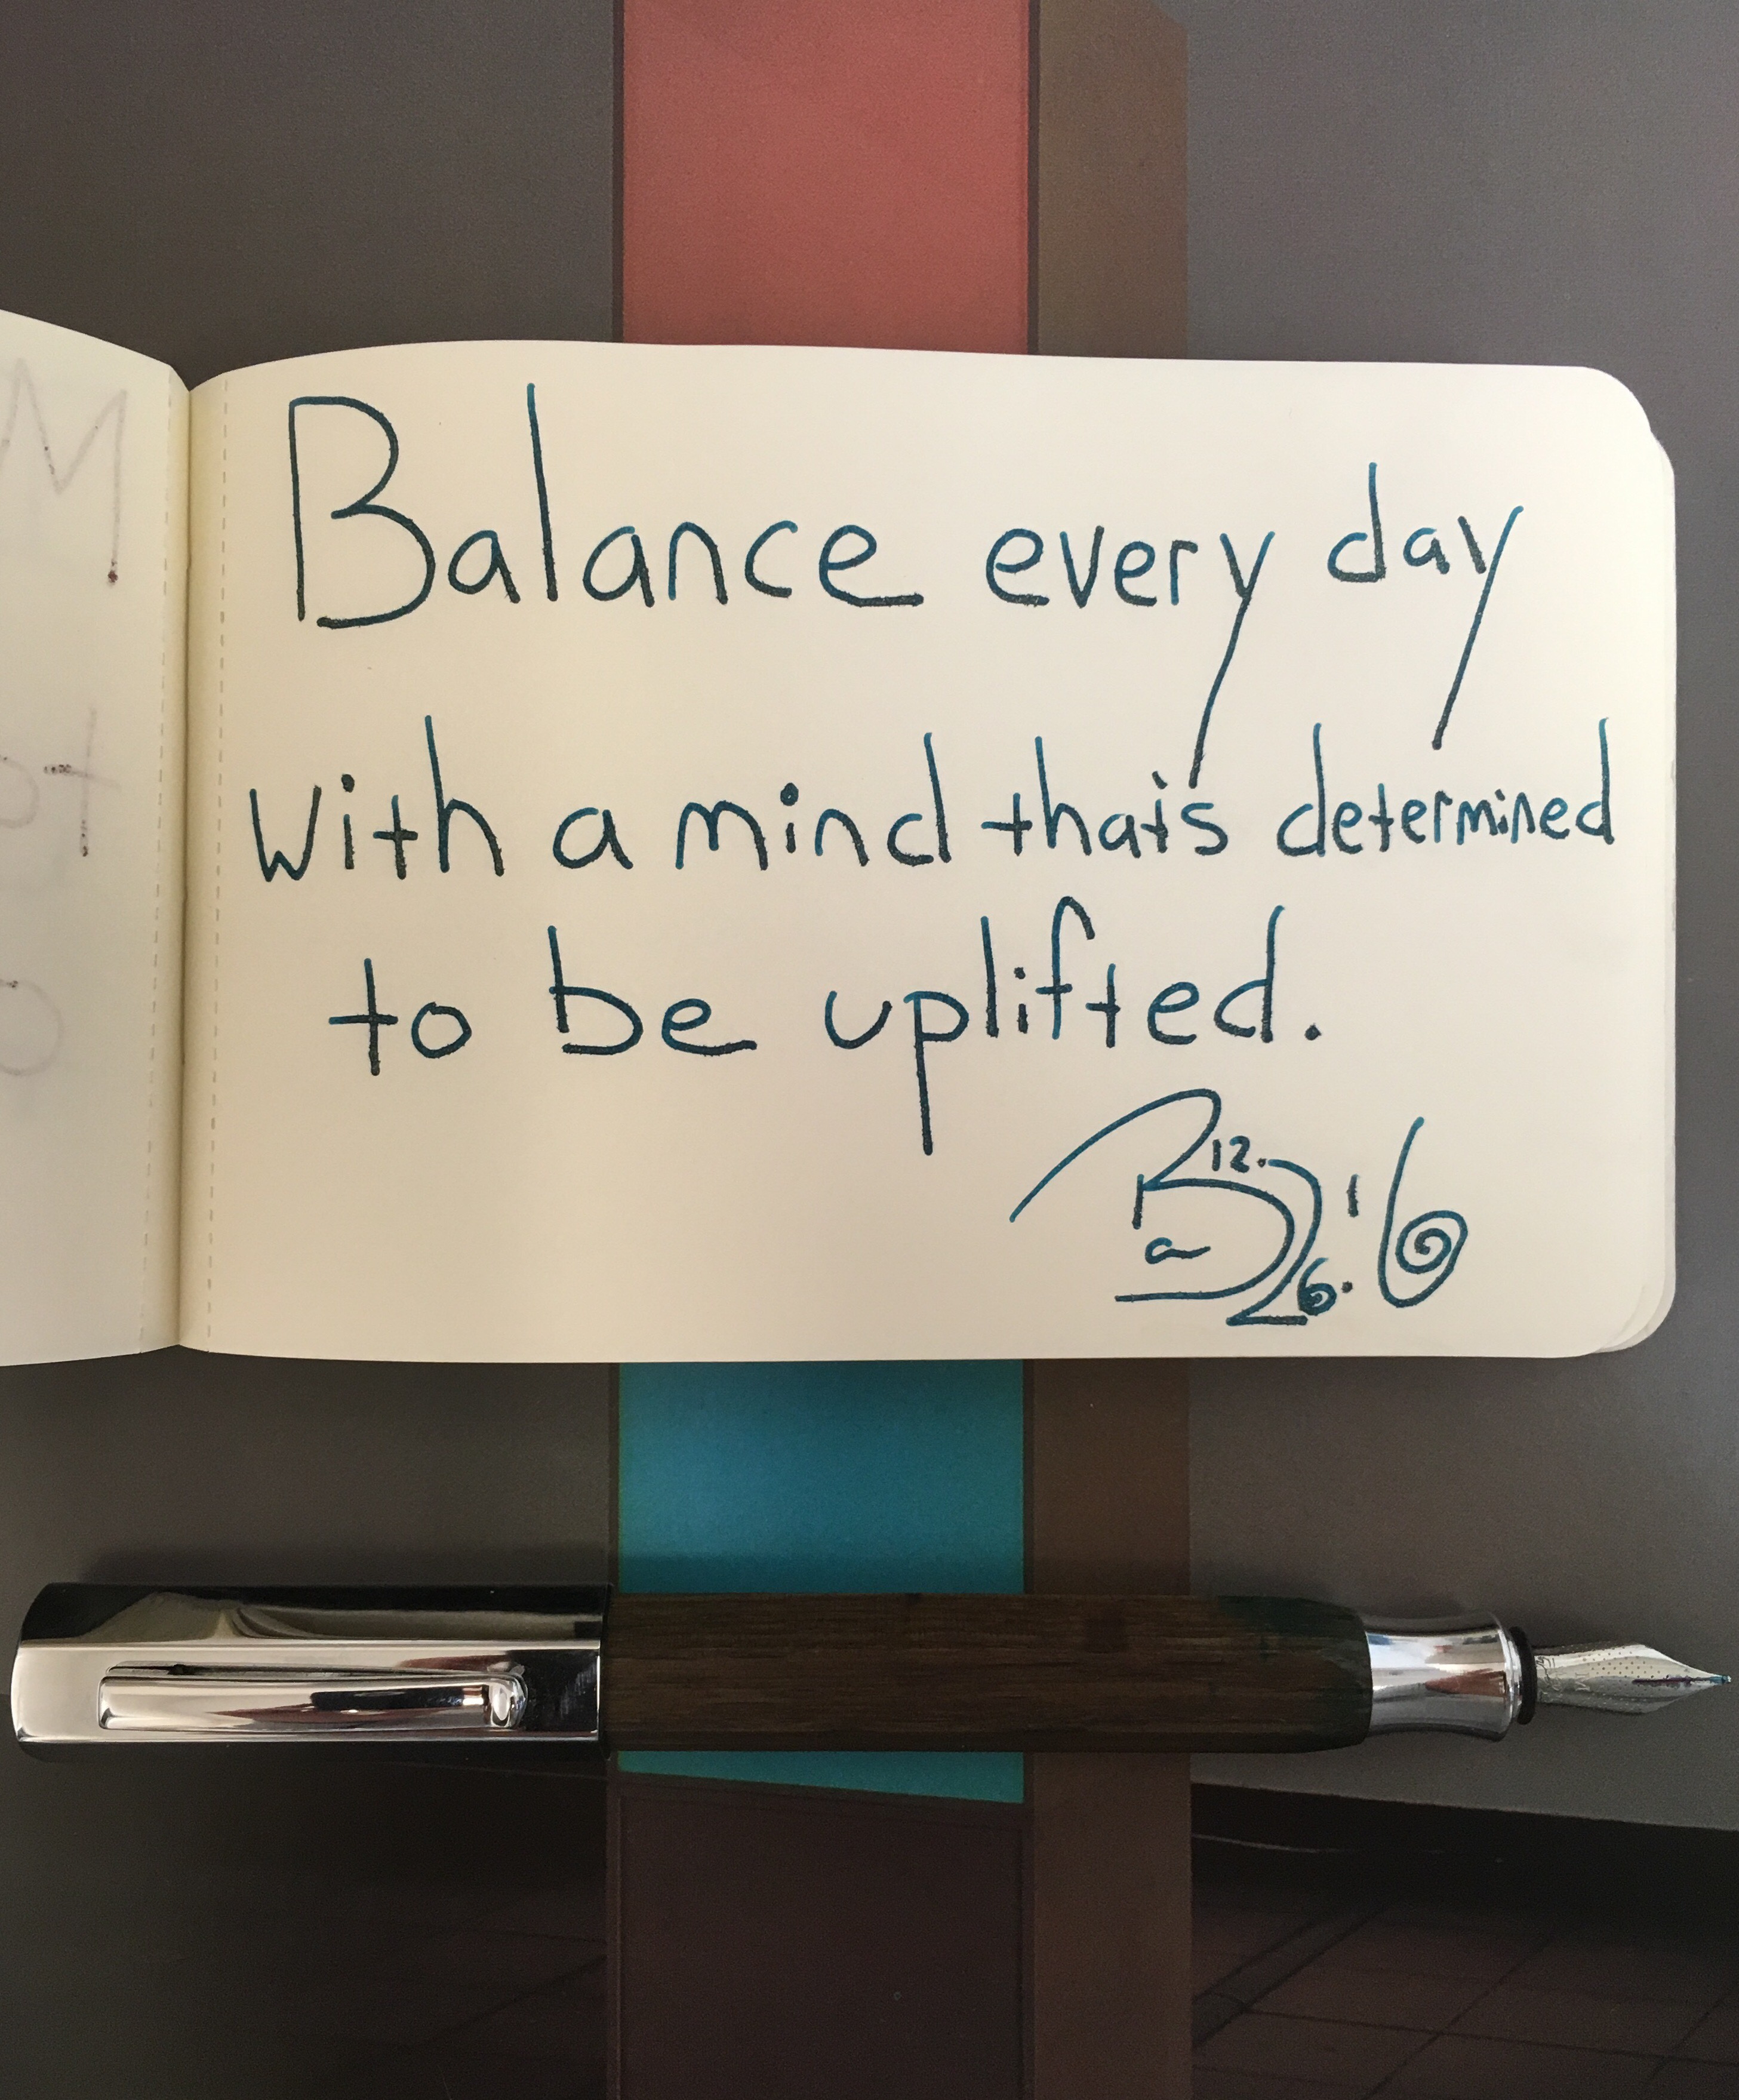 Balance every day
with a mind that's determined
to be uplifted.
12.
26.'16